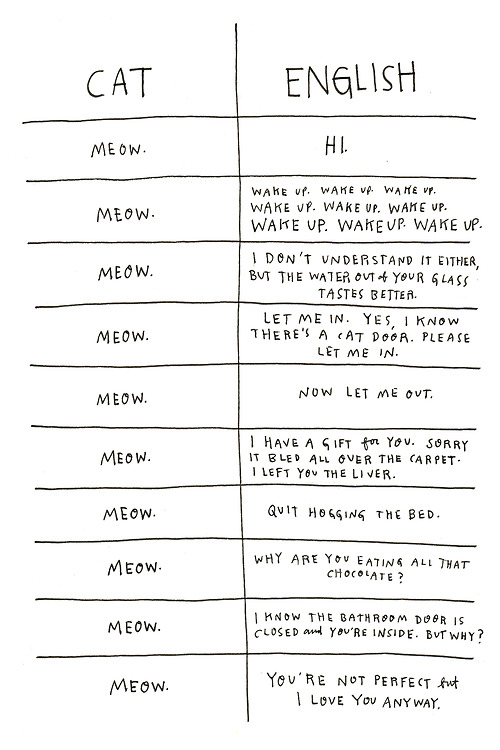 CAT ENGLISH
MEOW. HI.
MEOW. WAKE UP. WAKE UP. WAKE UP.
WAKE UP. WAKE UP. WAKE UP.
WAKE UP. WAKE UP. WAKE UP.
MEOW. I DON'T UNDERSTAND IT EITHER,
BUT THE WATER OUT of YOUR GLASS
TASTES BETTER.
MEOW. LET ME IN. YES, I KNOW
THERE'S A CAT DOOR. PLEASE
LET ME IN.
MEOW. NOW LET ME OUT.
MEOW. I HAVE A GIFT for YOU. SORRY
IT BLED ALL OVER THE CARPET.
I LEFT YOU THE LIVER.
MEOW. QUIT HOGGING THE BED.
MEOW. WHY ARE YOU EATING ALL THAT
CHOCOLATE?
MEOW. I KNOW THE BATHROOM DOOR IS
CLOSED and YOU'RE INSIDE. BUT WHY?
MEOW. YOU'RE NOT PERFECT but
I LOVE YOU ANYWAY.